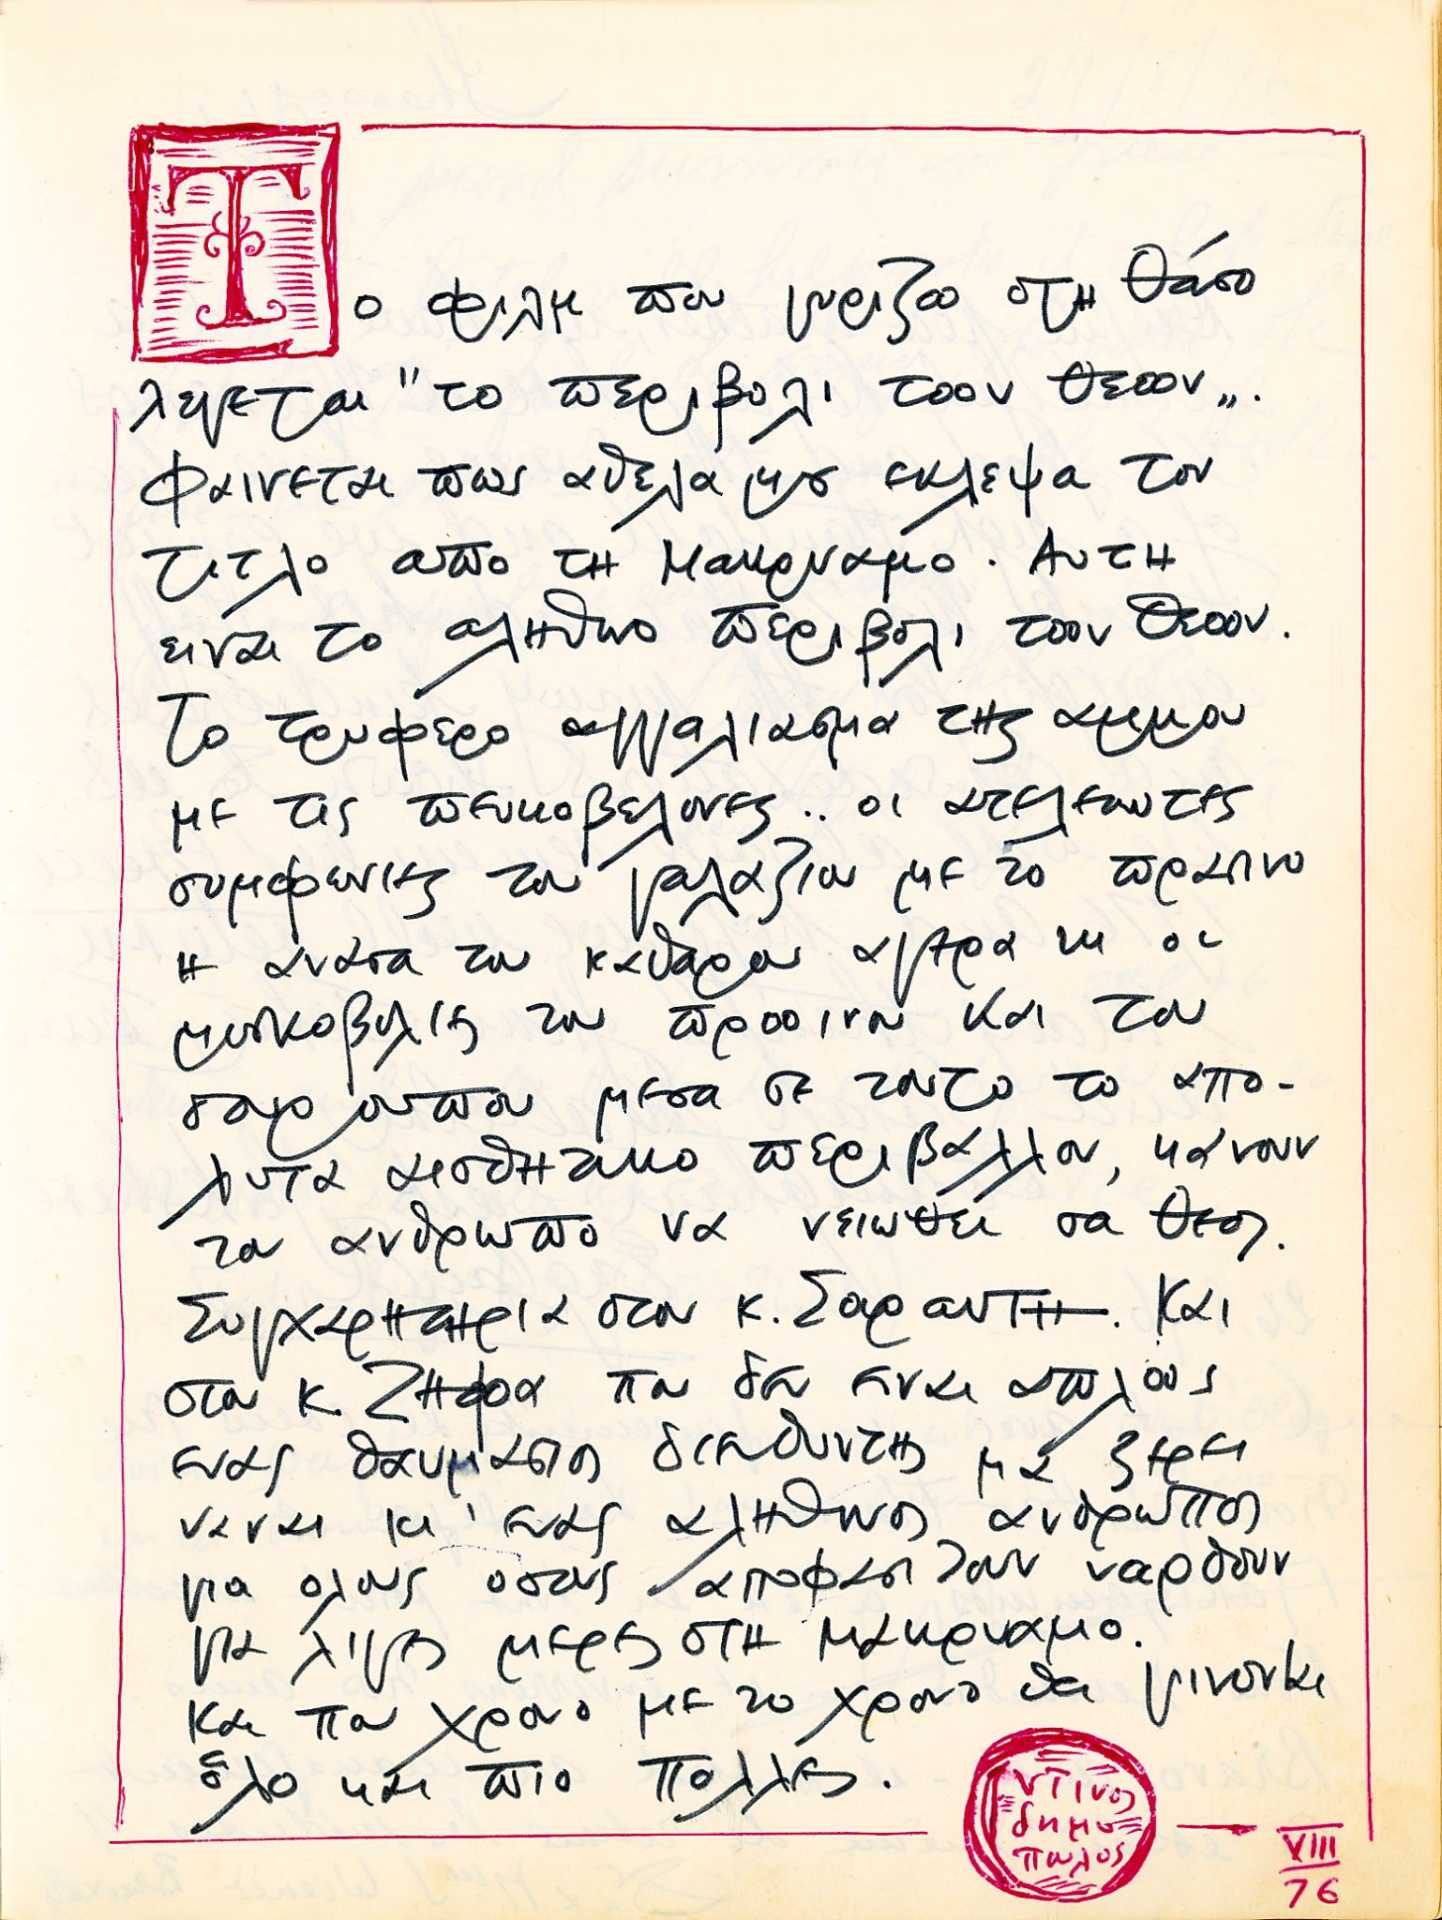 Το φιλμ που γυριζω στη Θάσο
λεγεται "το περιβολι των θεων".
Φαινεται πως αθελα μου εκλεψα τον
τιτλο απο τη Μακρυαμο. Αυτη
ειναι το αληθινο περιβολι των θεων.
Το τρυφερο αγγαλιασμα της αμμου
με τις πευκοβελονες.. οι ατελειωτες
συμφωνιες του γαλαζιου με το πρασινο
η ανασα του καθαρου αγερα κι οι
μοσκοβολιες του πρωινου και του
σουρουπου μεσα σε τουτο το απο-
λυτα αισθητικο περιβαλλον, κανουν
τον ανθρωπο να νειωθει σα θεος.
Συγχαρητηρια στον κ. Σαραντη. Και
στον κ. Ζηφα που δεν ειναι απλους
ενας θαυμασιος διευθυντης μα ξερει
ναναι κι' ενας αληθινος ανθρωπος
για ολους οσους αποφασιζουν ναρθουν
για λιγες μερες στη Μακρυαμο.
Και που χρονο με το χρονο θα γινονται
ολο και πιο πολλες.
ντινος
δημο
πουλος
VIII
76